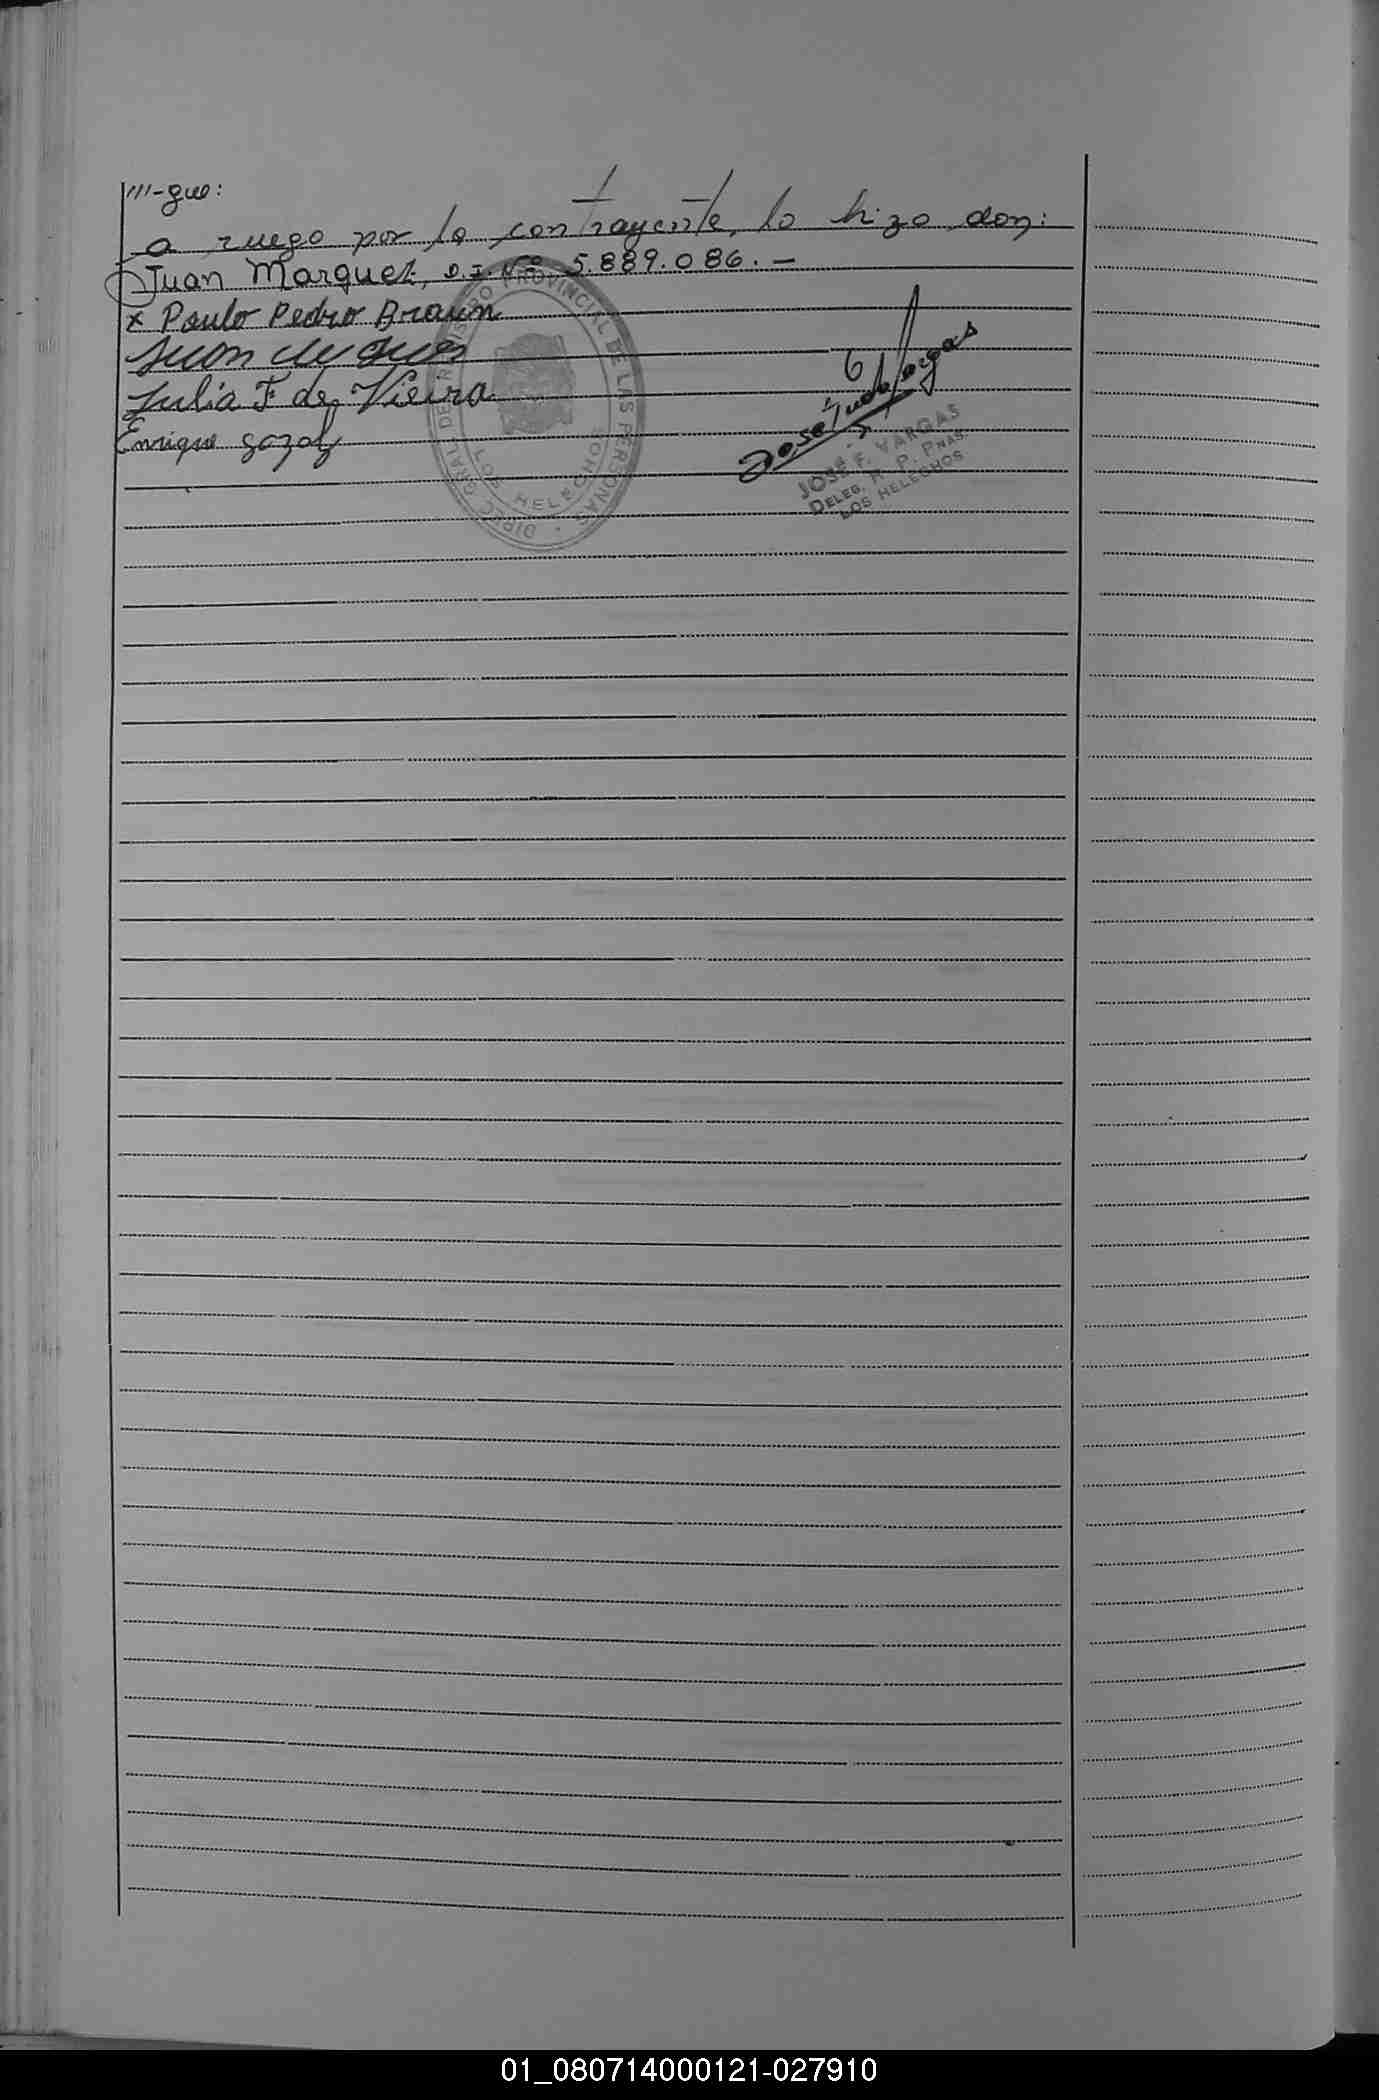 ///-gue:
a ruego por la contrayente, lo hizo don:
Juan Marquez, D.I. Nº 5.889.086.—
x Paulo Pedro Braun
Juan
Julia F de Vieira
Enrique
DIREC. GRAL. DE REGISTRO PROVINCIAL DE LAS PERSONAS
LOS HELECHOS
José Vargas
JOSÉ F. VARGAS
DELEG. R. P. PNAS.
LOS HELECHOS
01_080714000121-027910